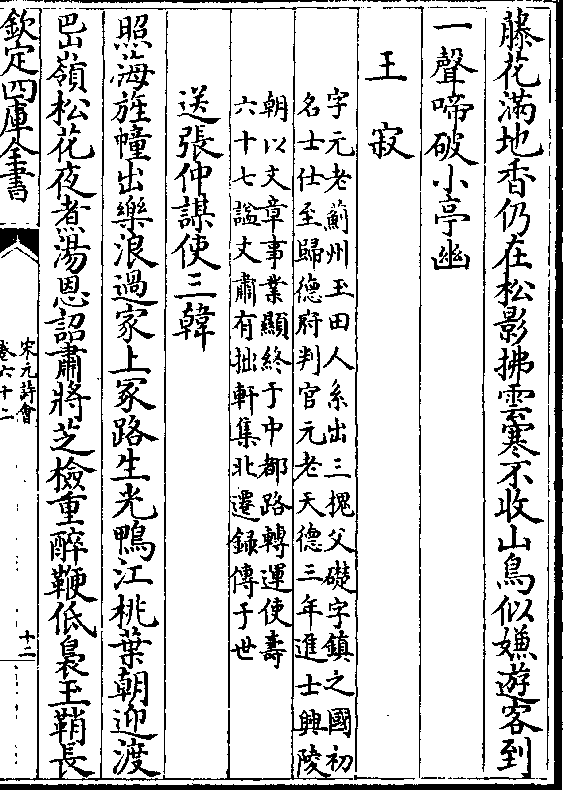 藤花滿地香仍在松影拂雲寒不收山鳥似嫌遊客到
一聲啼破小亭幽
王寂
字元老薊州玉田人系出三槐父礎字鎮之國初
名士仕至歸德府判官元老天德三年進士興陵
朝以文章事業顯終于中都路轉運使壽
六十七諡文肅有拙軒集北遷録傳于世
送張仲謀使三韓
照海旌幢出樂浪過家上冢路生光鴨江桃葉朝迎渡
巴嶺松花夜煮湯恩詔肅將芝檢重醉鞭低裊玉鞘長
欽定四庫全書
宋元詩會
卷六十二
十二